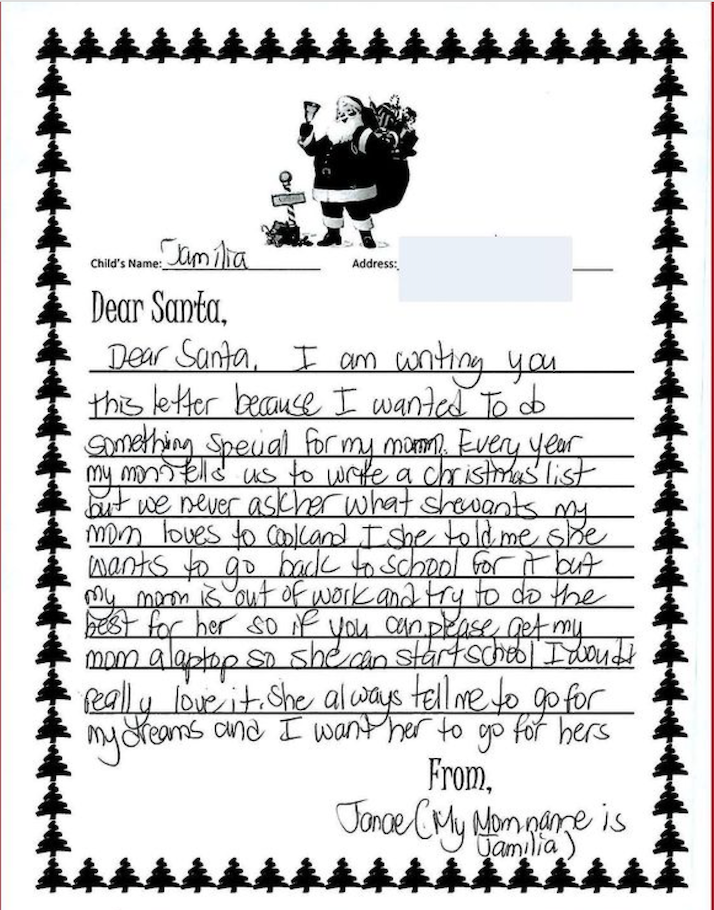 Child's Name: Jamilia Address:
Dear Santa,
Dear Santa, I am writing you
this letter because I wanted To do
something special for my momm. Every year
my mom tells us to write a christmas list
but we never ask her what she wants my
mom loves to cook and I she told me she
wants to go back to school for it but
my mom is out of work and try to do the
best for her so if you can please get my
mom a laptop so she can start school I would
really love it. She always tell me to go for
my dreams and I want her to go for hers
From,
Janae (My Mom name is
Jamilia)